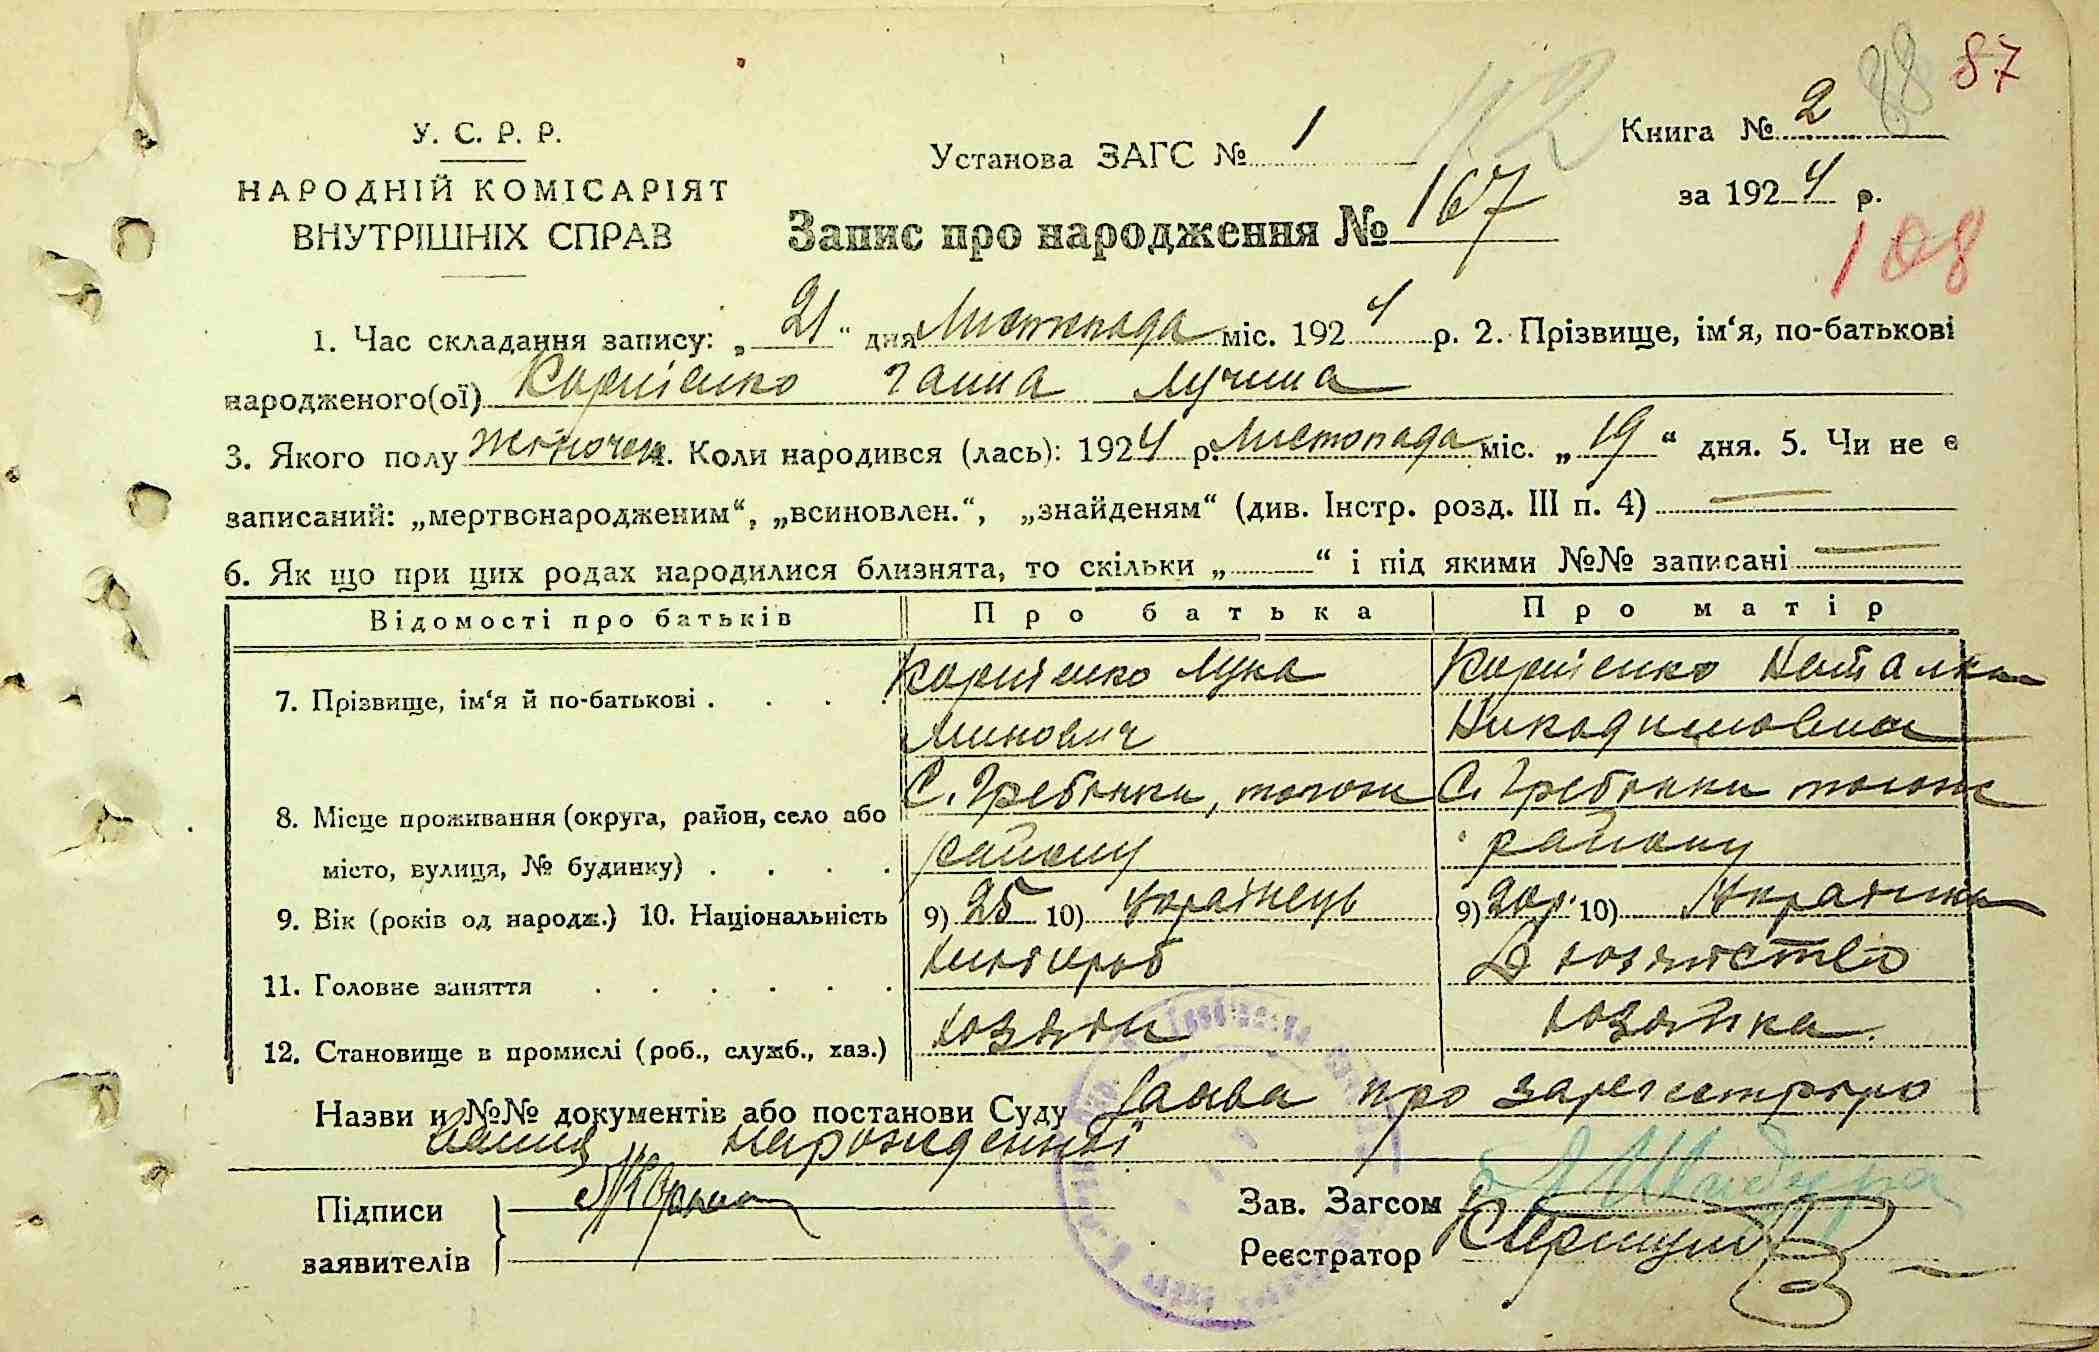 88 87
У. С. Р. Р.
НАРОДНІЙ КОМІСАРІЯТ
ВНУТРІШНІХ СПРАВ
Установа ЗАГС № 1
112
Книга № 2
за 1924 р.
108
Запис про народження № 167
1. Час складання запису: „21“ дня Листопада міс. 1924 р. 2. Прізвище, ім‘я, по-батькові
народженого(ої) Корнієнко Ганна Лучина
3. Якого полу жіночої 4. Коли народився (лась): 1924 р. Листопада міс. „19“ дня. 5. Чи не є
записаний: „мертвонародженим“, „всиновлен.“, „знайденям“ (див. Інстр. розд. III п. 4)
6. Як що при цих родах народилися близнята, то скільки „ “ і під якими №№ записані
Відомості про батьків Про батька Про матір
7. Прізвище, ім‘я й по-батькові . . . . Корнієнко Лука Корнієнко Наталка
Минович Никодимовна
8. Місце проживання (округа, район, село або С. Гребінки, того ж С. Гребінки того ж
місто, вулиця, № будинку) . . . . району району
9. Вік (років од народж.) 10. Національність 9) 25 10) Українець 9) 20 р. 10) Українка
11. Головне заняття . . . . . . хлібороб Д хозяйство
12. Становище в промислі (роб., служб., хаз.) хозяін хозяйка.
Назви и №№ документів або постанови Суду Заява про зарегистриро
вання народження
Підписи
заявителів
Зав. Загсом
Реєстратор